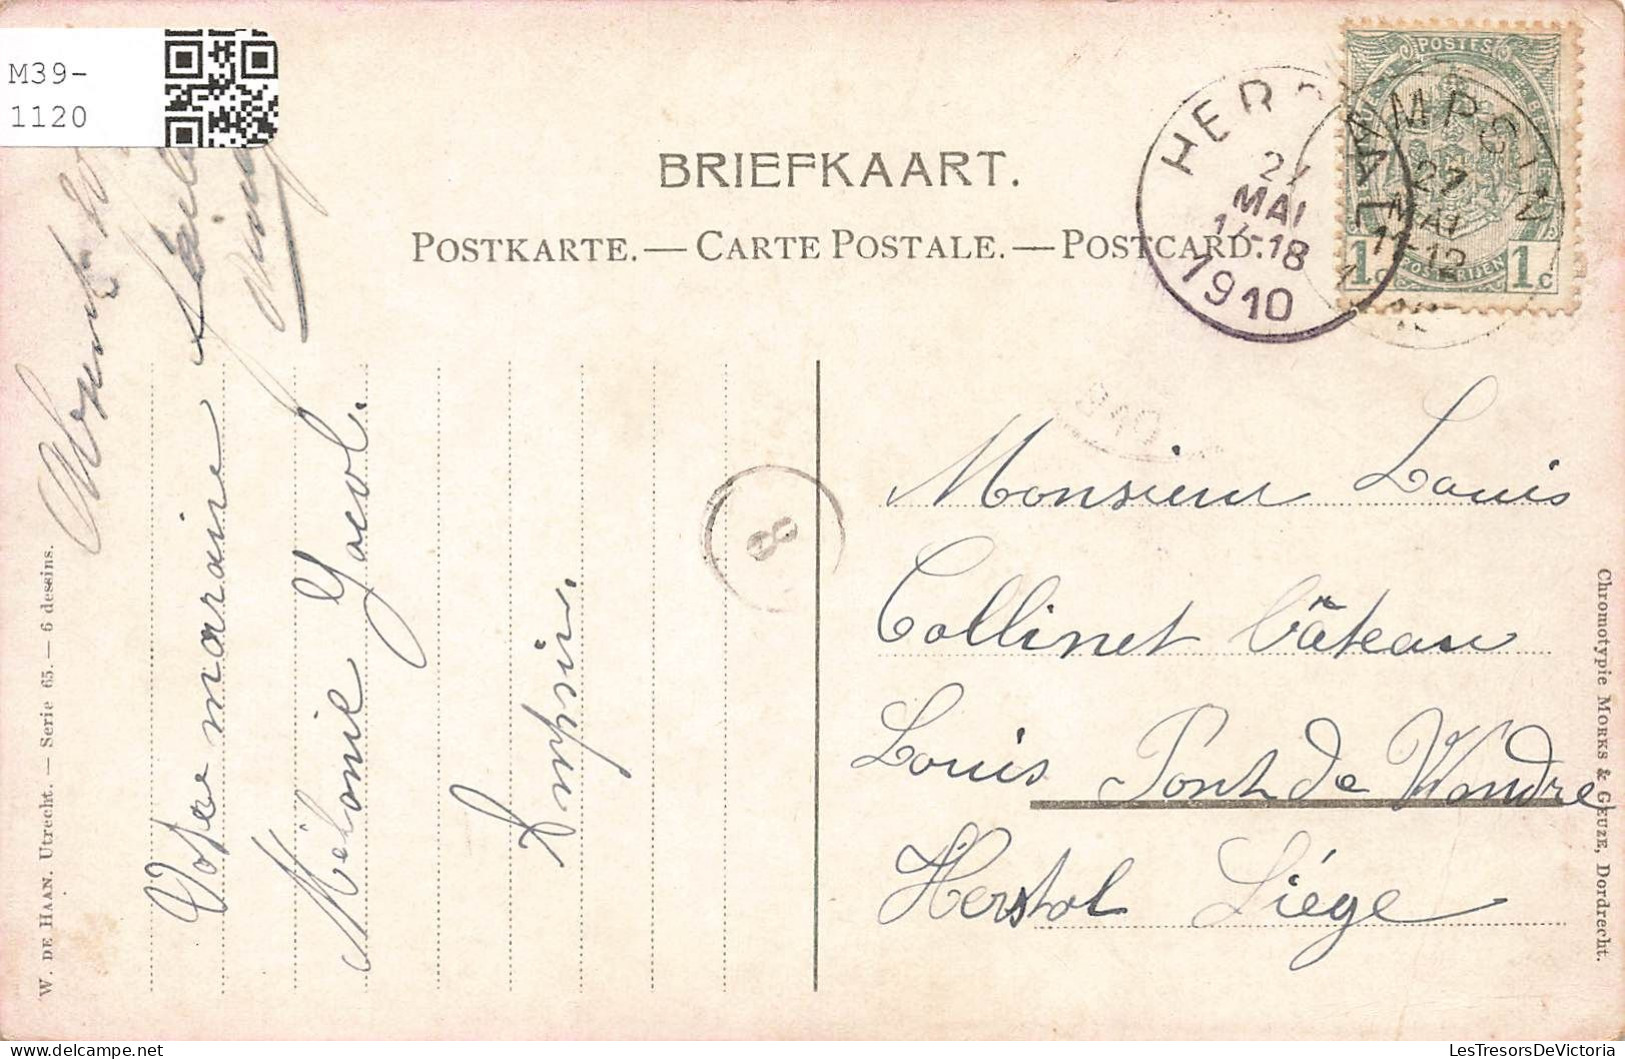 M39-
1120
BRIEFKAART.
POSTKARTE. — CARTE POSTALE. — POSTCARD.
HERSTAL
27
MAI
17-18
1910
POSTES
1c POSTERIJEN 1c
AMPSIN
27
MAI
11-12
8
Votre marraine
Mélonie Jacob.
Ampsin.
Monsieur Louis
Collinet Câteau
Louis Pont de Wandre
Herstal Liége
W. DE HAAN. Utrecht. — Serie 65. — 6 dessins.
Chromotypie MORKS & GEUZE, Dordrecht.
LesTresorsDeVictoria